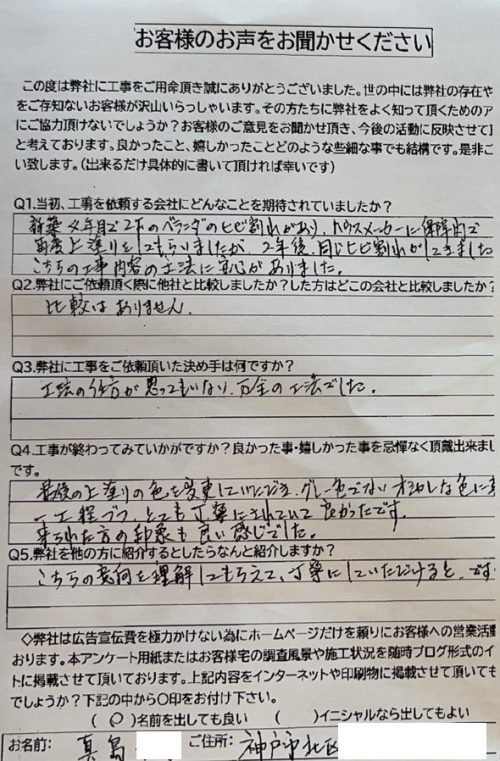 お客様のお声をお聞かせください
この度は弊社に工事をご用命頂き誠にありがとうございました。世の中には弊社の存在や
をご存知ないお客様が沢山いらっしゃいます。その方たちに弊社をよく知って頂くためのア
にご協力頂けないでしょうか？お客様のご意見をお聞かせ頂き、今後の活動に反映させて
と考えております。良かったこと、嬉しかったことどのような些細な事でも結構です。是非ご
い致します。（出来るだけ具体的に書いて頂ければ幸いです）
Q1.当初、工事を依頼する会社にどんなことを期待されていましたか？
新築 年目で2Fのベランダのヒビ割れがあり、ハウスメーカーに保障内で
再度上塗りをしてもらいましたが、2年後、同じヒビ割れがしてきました
こちらの工事内容の工法に安心がありました。
Q2.弊社にご依頼頂く際に他社と比較しましたか？した方はどこの会社と比較しましたか？
比較はありません.
Q3.弊社に工事をご依頼頂いた決め手は何ですか？
工法の仕方が思ってもいない、万全の工法でした。
Q4.工事が終わってみていかがですか？良かった事・嬉しかった事を忌憚なく頂戴出来まし
です。
最後の上塗りの色を変更していただき、グレー色でない オシャレな色に
一工程づつ、とても丁寧にされていて良かったです。
来られた方の印象も良い感じでした。
Q5.弊社を他の方に紹介するとしたらなんと紹介しますか？
こちらの意向を理解してもらえて、丁寧にしていただけると、です
◇弊社は広告宣伝費を極力かけない為にホームページだけを頼りにお客様への営業活動
おります。本アンケート用紙またはお客様宅の調査風景や施工状況を随時ブログ形式のイ
トに掲載させて頂いております。上記内容をインターネットや印刷物に掲載させて頂いても
でしょうか？下記の中から〇印をお付け下さい。
（〇）名前を出しても良い　（　）イニシャルなら出してもよい
お名前：　真島　ご住所：　神戸市北区